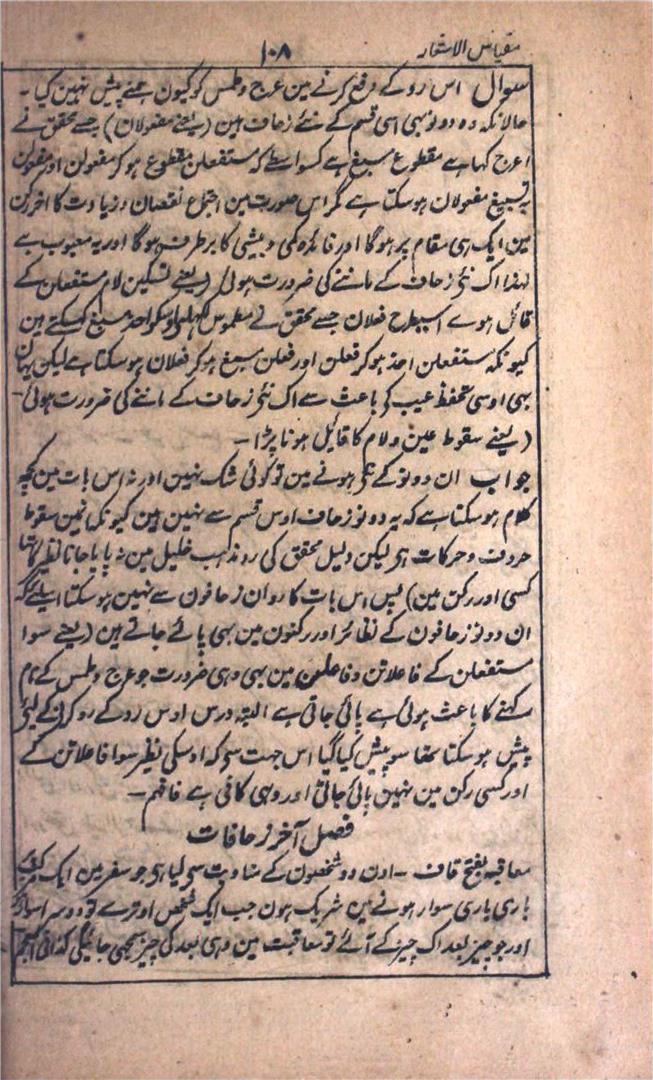 مقیاس الاشعار ۱۰۸
سوال اس رو کے رفع کرنے مین عرج و طمس کو کیون ہمنے پیش نہین کیا ۔
حالانکہ وہ دونو بہی اسی قسم کے نئے زحاف ہین (یعنے مفعولان) جسے محقق نے
اعرج کہا ہے مقطوع مسبغ ہے کسواسطے کہ مستفعلن مقطوع ہو کر مفعولن اور مفعولن
بہ تسبیغ مفعولان ہو سکتا ہے مگر اس صورت مین اجتماع نقصان و زیادت کا آخر رکن
مین ایک ہی مقام پر ہوگا اور فائدہ کمی و بیشی کا برطرف ہوگا اور یہ معیوب ہے
لہذا اک نئی زحاف کے ماننے کی ضرورت ہوئی (یعنے تسکین لام مستفعلن کے
قائل ہوے اسیطرح فعلان جسے محقق نے مطموس لکھا ہی اوسکو احذ مسبغ کہسکتے ہین
کیونکہ مستفعلن احذ ہو کر فعلن اور فعلن مسبغ ہو کر فعلان ہو سکتا ہے لیکن یہان
بہی اوسی تحفظ عیب کے باعث سے اک نئی زحاف کے ماننے کی ضرورت ہوئی ۔
(یعنے سقوط عین و لام کا قائل ہونا پڑا ۔
جواب ان دونو کے ہونے مین تو کوئی شک نہین اور نہ اس بات مین کچھ
کلام ہو سکتا ہے کہ یہ دونو زحاف اوس قسم سے نہین ہین کیونکہ انمین سقوط
حروف و حرکات ہی لیکن دلیل محقق کی رو مذہب خلیل مین نہ پایا جانا نظیر کا تھا
کسی اور رکن مین) پس اس بات کا رد ان زحافون سے نہین ہو سکتا اسلیے کہ
ان دونو زحافون کے نظائر اور رکنون مین بہی پائے جاتے ہین (یعنے سوا
مستفعلن کے فاعلاتن و فاعلن مین بہی وہی ضرورت جو عرج و طمس کے نام
رکہنے کا باعث ہوئی ہے پائی جاتی ہے البتہ درس اوس رو کے رد کرنیکے لیئے
پیش ہو سکتا تھا سو پیش کیا گیا اس جہت سی کہ اوسکی نظیر سوا فاعلاتن کے
اور کسی رکن مین نہین پائی جاتی اور وہی کافی ہے فافہم ۔
فصل آخر زحافات
معاقبہ بفتح قاف ۔ اون دو شخصون کے مناوبت سی لیا ہی جو سفر مین ایک مرکب
باری باری سوار ہونے مین شریک ہون جب ایک شخص اوترے تو دوسرا سوار
اور جو چیز بعد اک چیز کے آئے تو معاقبت مین وہی بعد کی چیز سمجھی جائیگی کذا فی